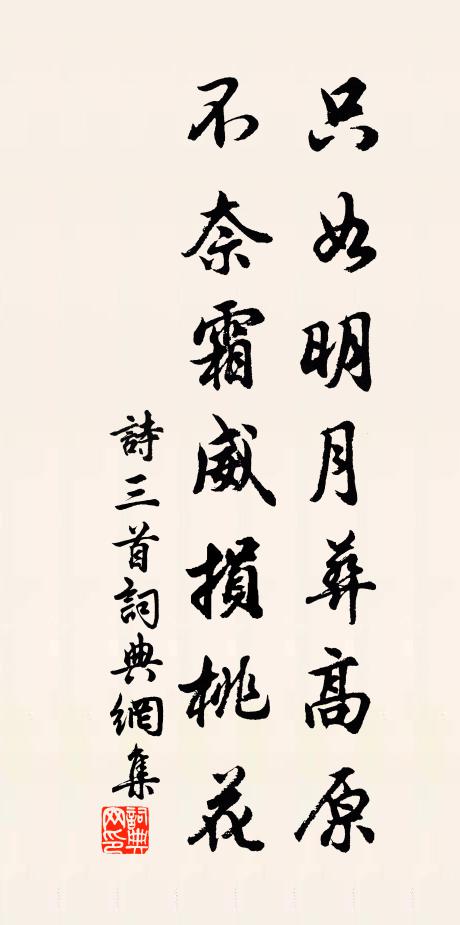 只如明月葬高原
不奈霜威損桃花
詩三首詞典網集
詞典網印